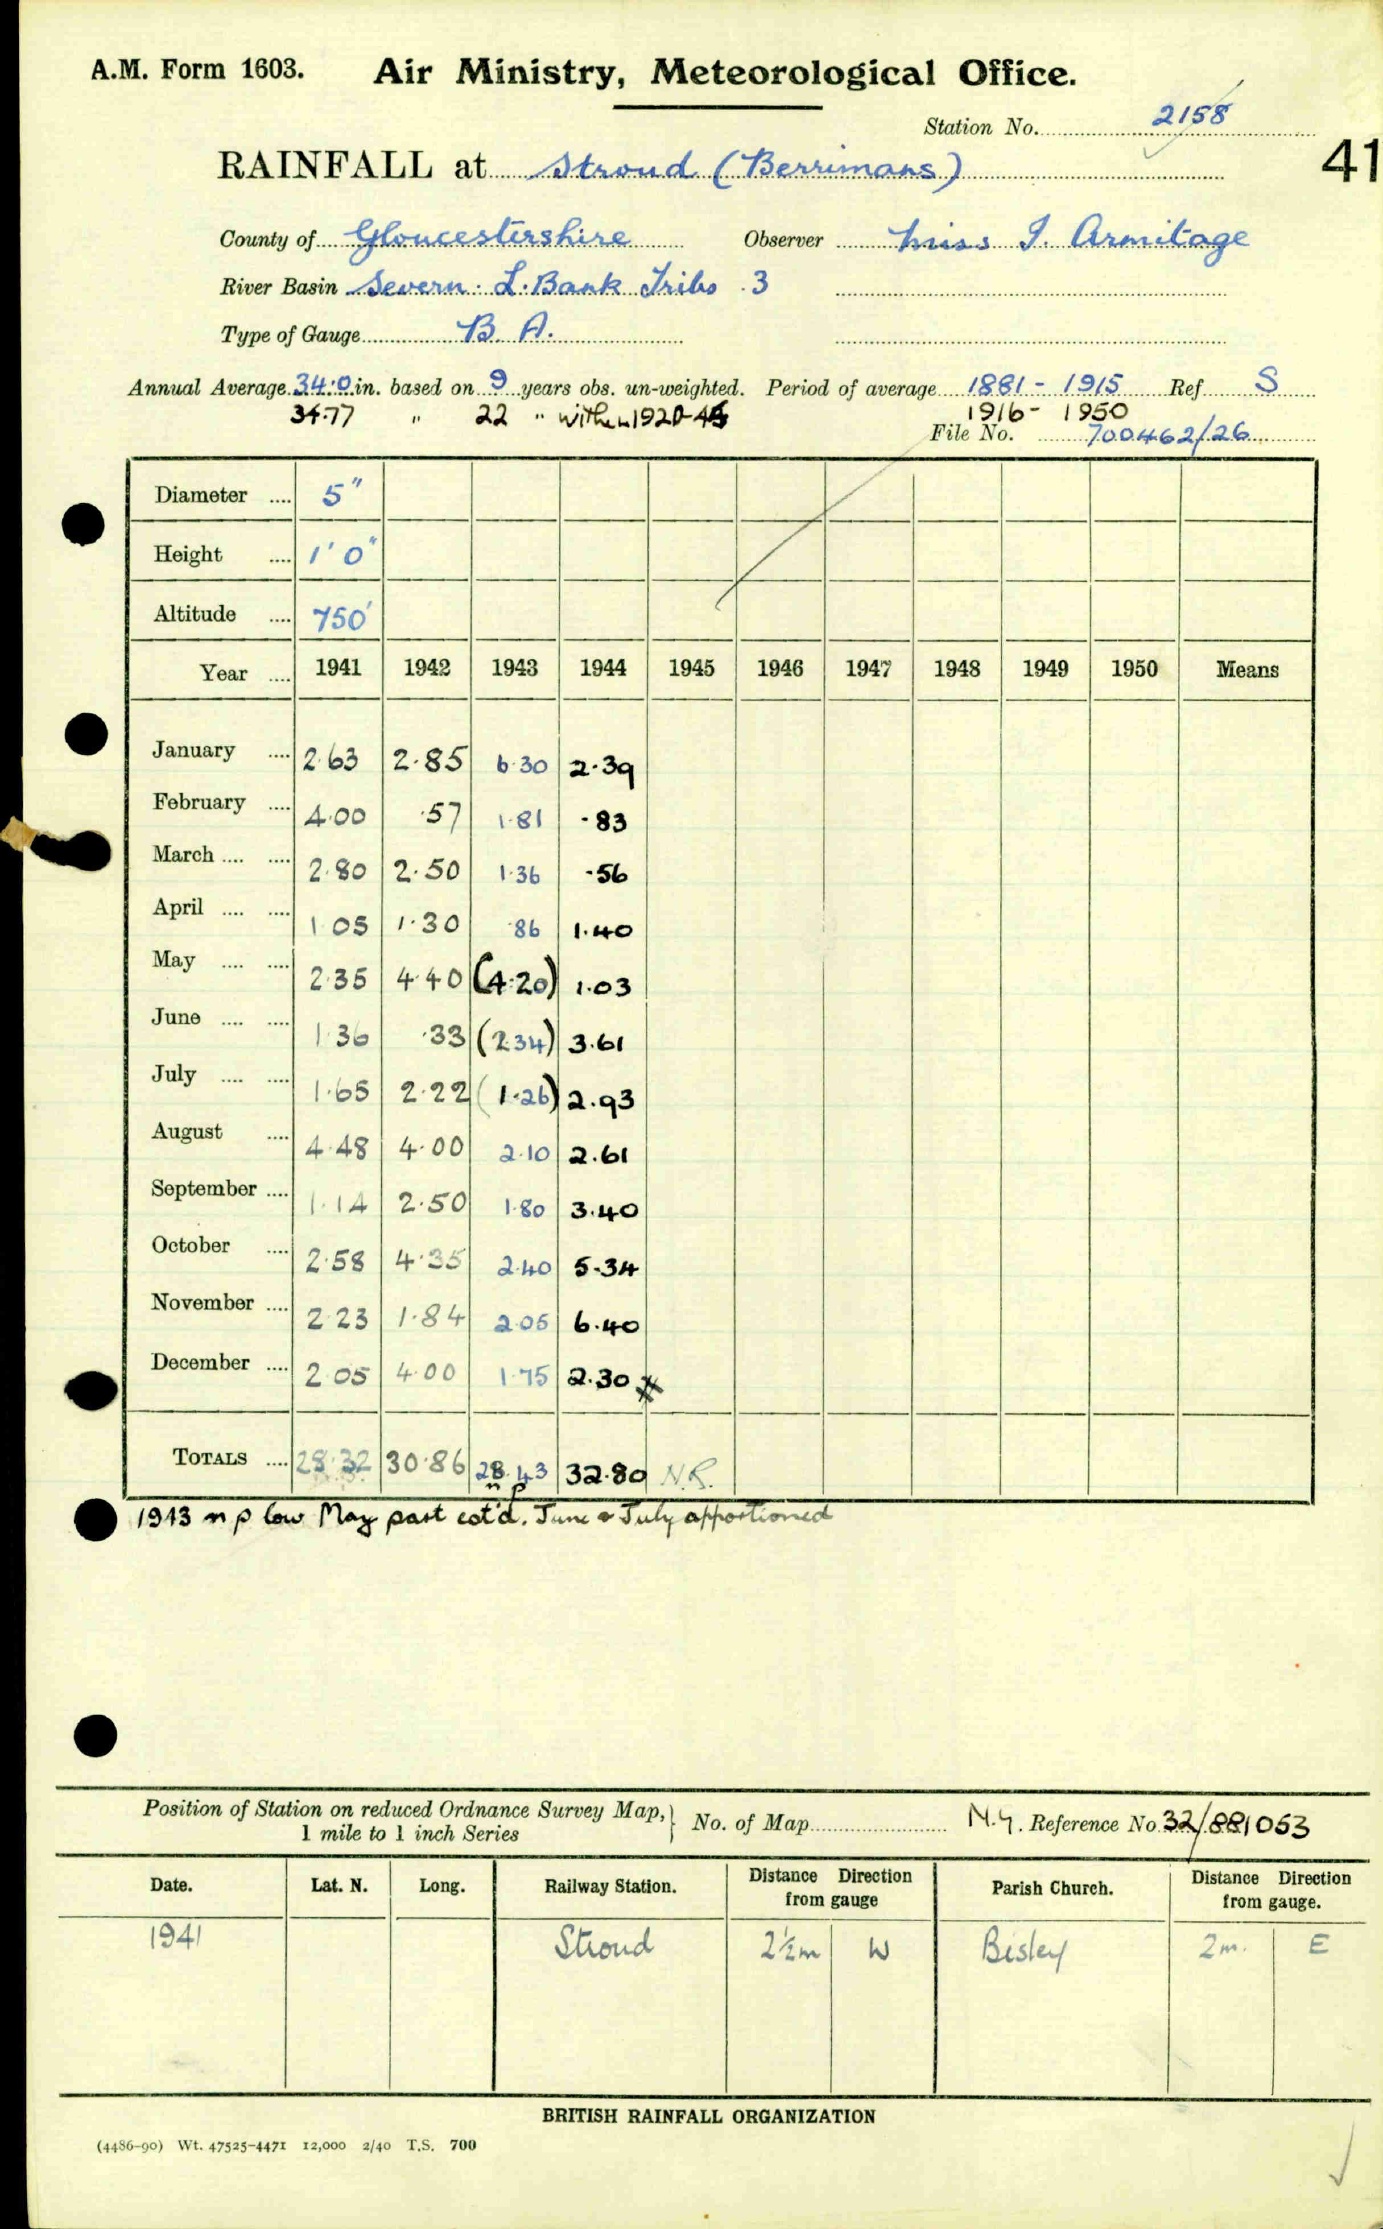 A.M. Form 1603. Air Ministry, Meteorological Office.
Station No. 2158
41
RAINFALL at Stroud (Berrimans)
County of Gloucestershire Observer Miss I. Armitage
River Basin Severn. L. Bank Tribs 3
Type of Gauge B. A.
Annual Average 34.0 in. based on 9 years obs. un-weighted. Period of average 1881 - 1915 Ref S
34.77 " 22 " within 1920-45 1916 - 1950
File No. 700462/26
Diameter .... 5"
Height .... 1' 0"
Altitude .... 750'
Year .... 1941 1942 1943 1944 1945 1946 1947 1948 1949 1950 Means
January .... 2.63 2.85 6.30 2.39
February .... 4.00 .57 1.81 .83
March .... .... 2.80 2.50 1.36 .56
April .... .... 1.05 1.30 .86 1.40
May .... .... 2.35 4.40 (4.20) 1.03
June .... .... 1.36 .33 (2.34) 3.61
July .... .... 1.65 2.22 (1.26) 2.93
August .... 4.48 4.00 2.10 2.61
September .... 1.14 2.50 1.80 3.40
October .... 2.58 4.35 2.40 5.34
November .... 2.23 1.84 2.05 6.40
December .... 2.05 4.00 1.75 2.30
TOTALS .... 28.32 30.86 28.43 32.80 N.R.
n p
1943 n p low May part est'd. June & July apportioned
Position of Station on reduced Ordnance Survey Map, 1 mile to 1 inch Series } No. of Map N.G. Reference No 32/881053
Date. Lat. N. Long. Railway Station. Distance Direction from gauge Parish Church. Distance Direction from gauge.
1941 Stroud 2½m W Bisley 2m. E
BRITISH RAINFALL ORGANIZATION
(4486-90) Wt. 47525-4471 12,000 2/40 T.S. 700